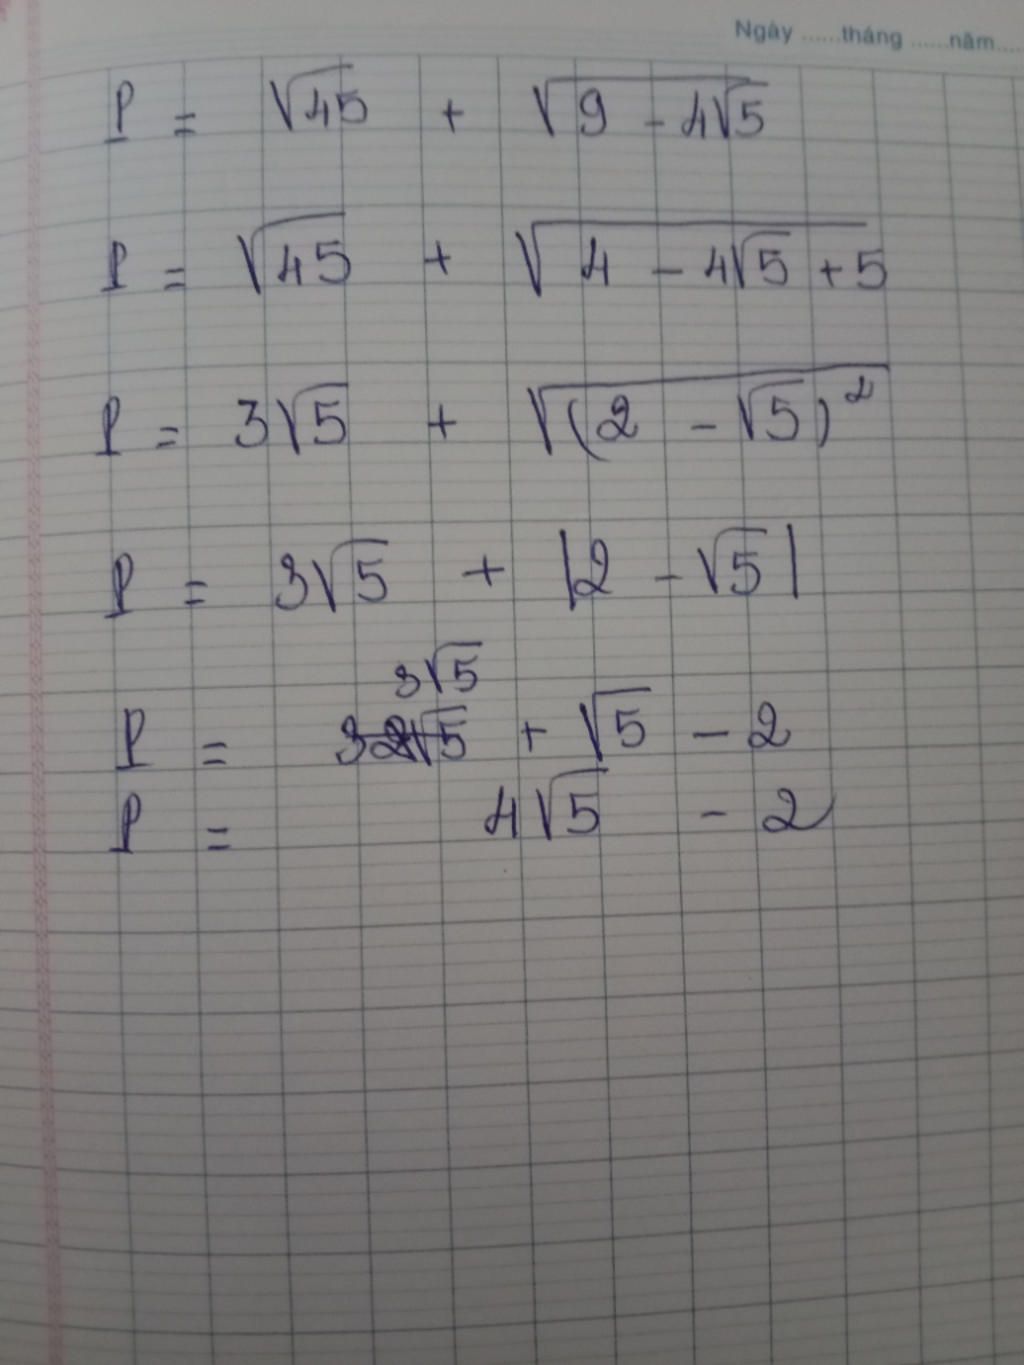 Ngày ......tháng ......năm.....
P = √45 + √(9 - 4√5)
P = √45 + √(4 - 4√5 + 5)
P = 3√5 + √((2 - √5)²)
P = 3√5 + |2 - √5|
3√5
P = √5 + √5 - 2
P = 4√5 - 2